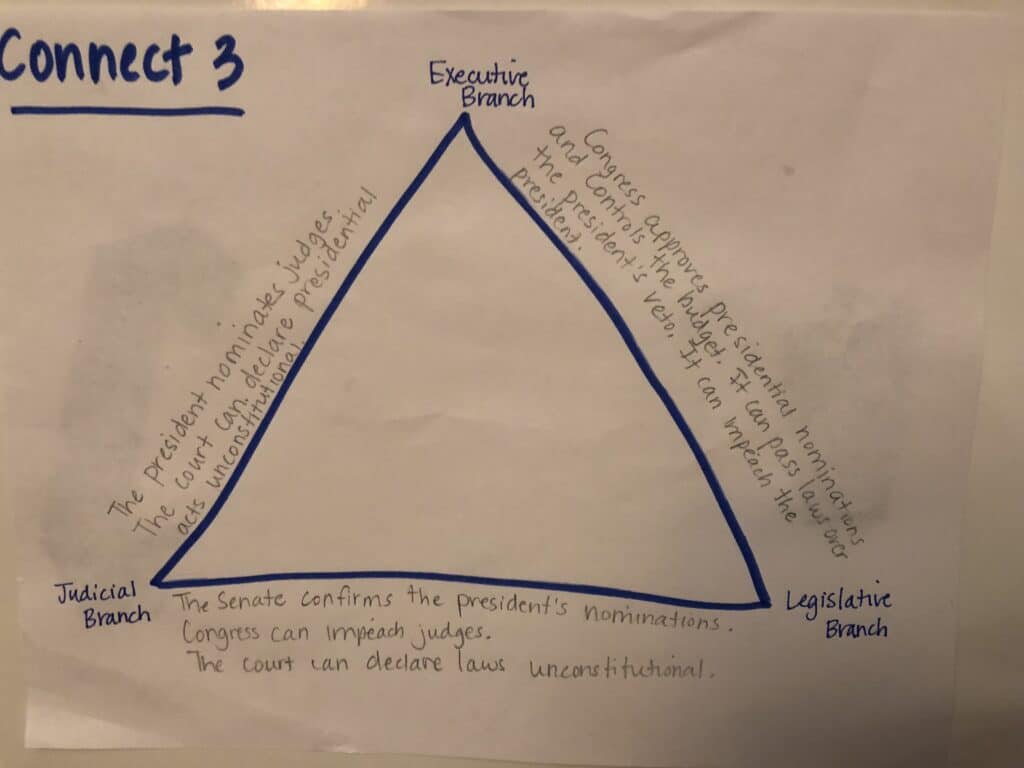 Connect 3
Executive
Branch
The president nominates judges.
The court can declare presidential
acts unconstitutional.
Congress approves presidential nominations
and controls the budget. It can pass laws over
the president's veto. It can impeach the
president.
Judicial
Branch
The Senate confirms the president's nominations.
Congress can impeach judges.
The court can declare laws unconstitutional.
Legislative
Branch